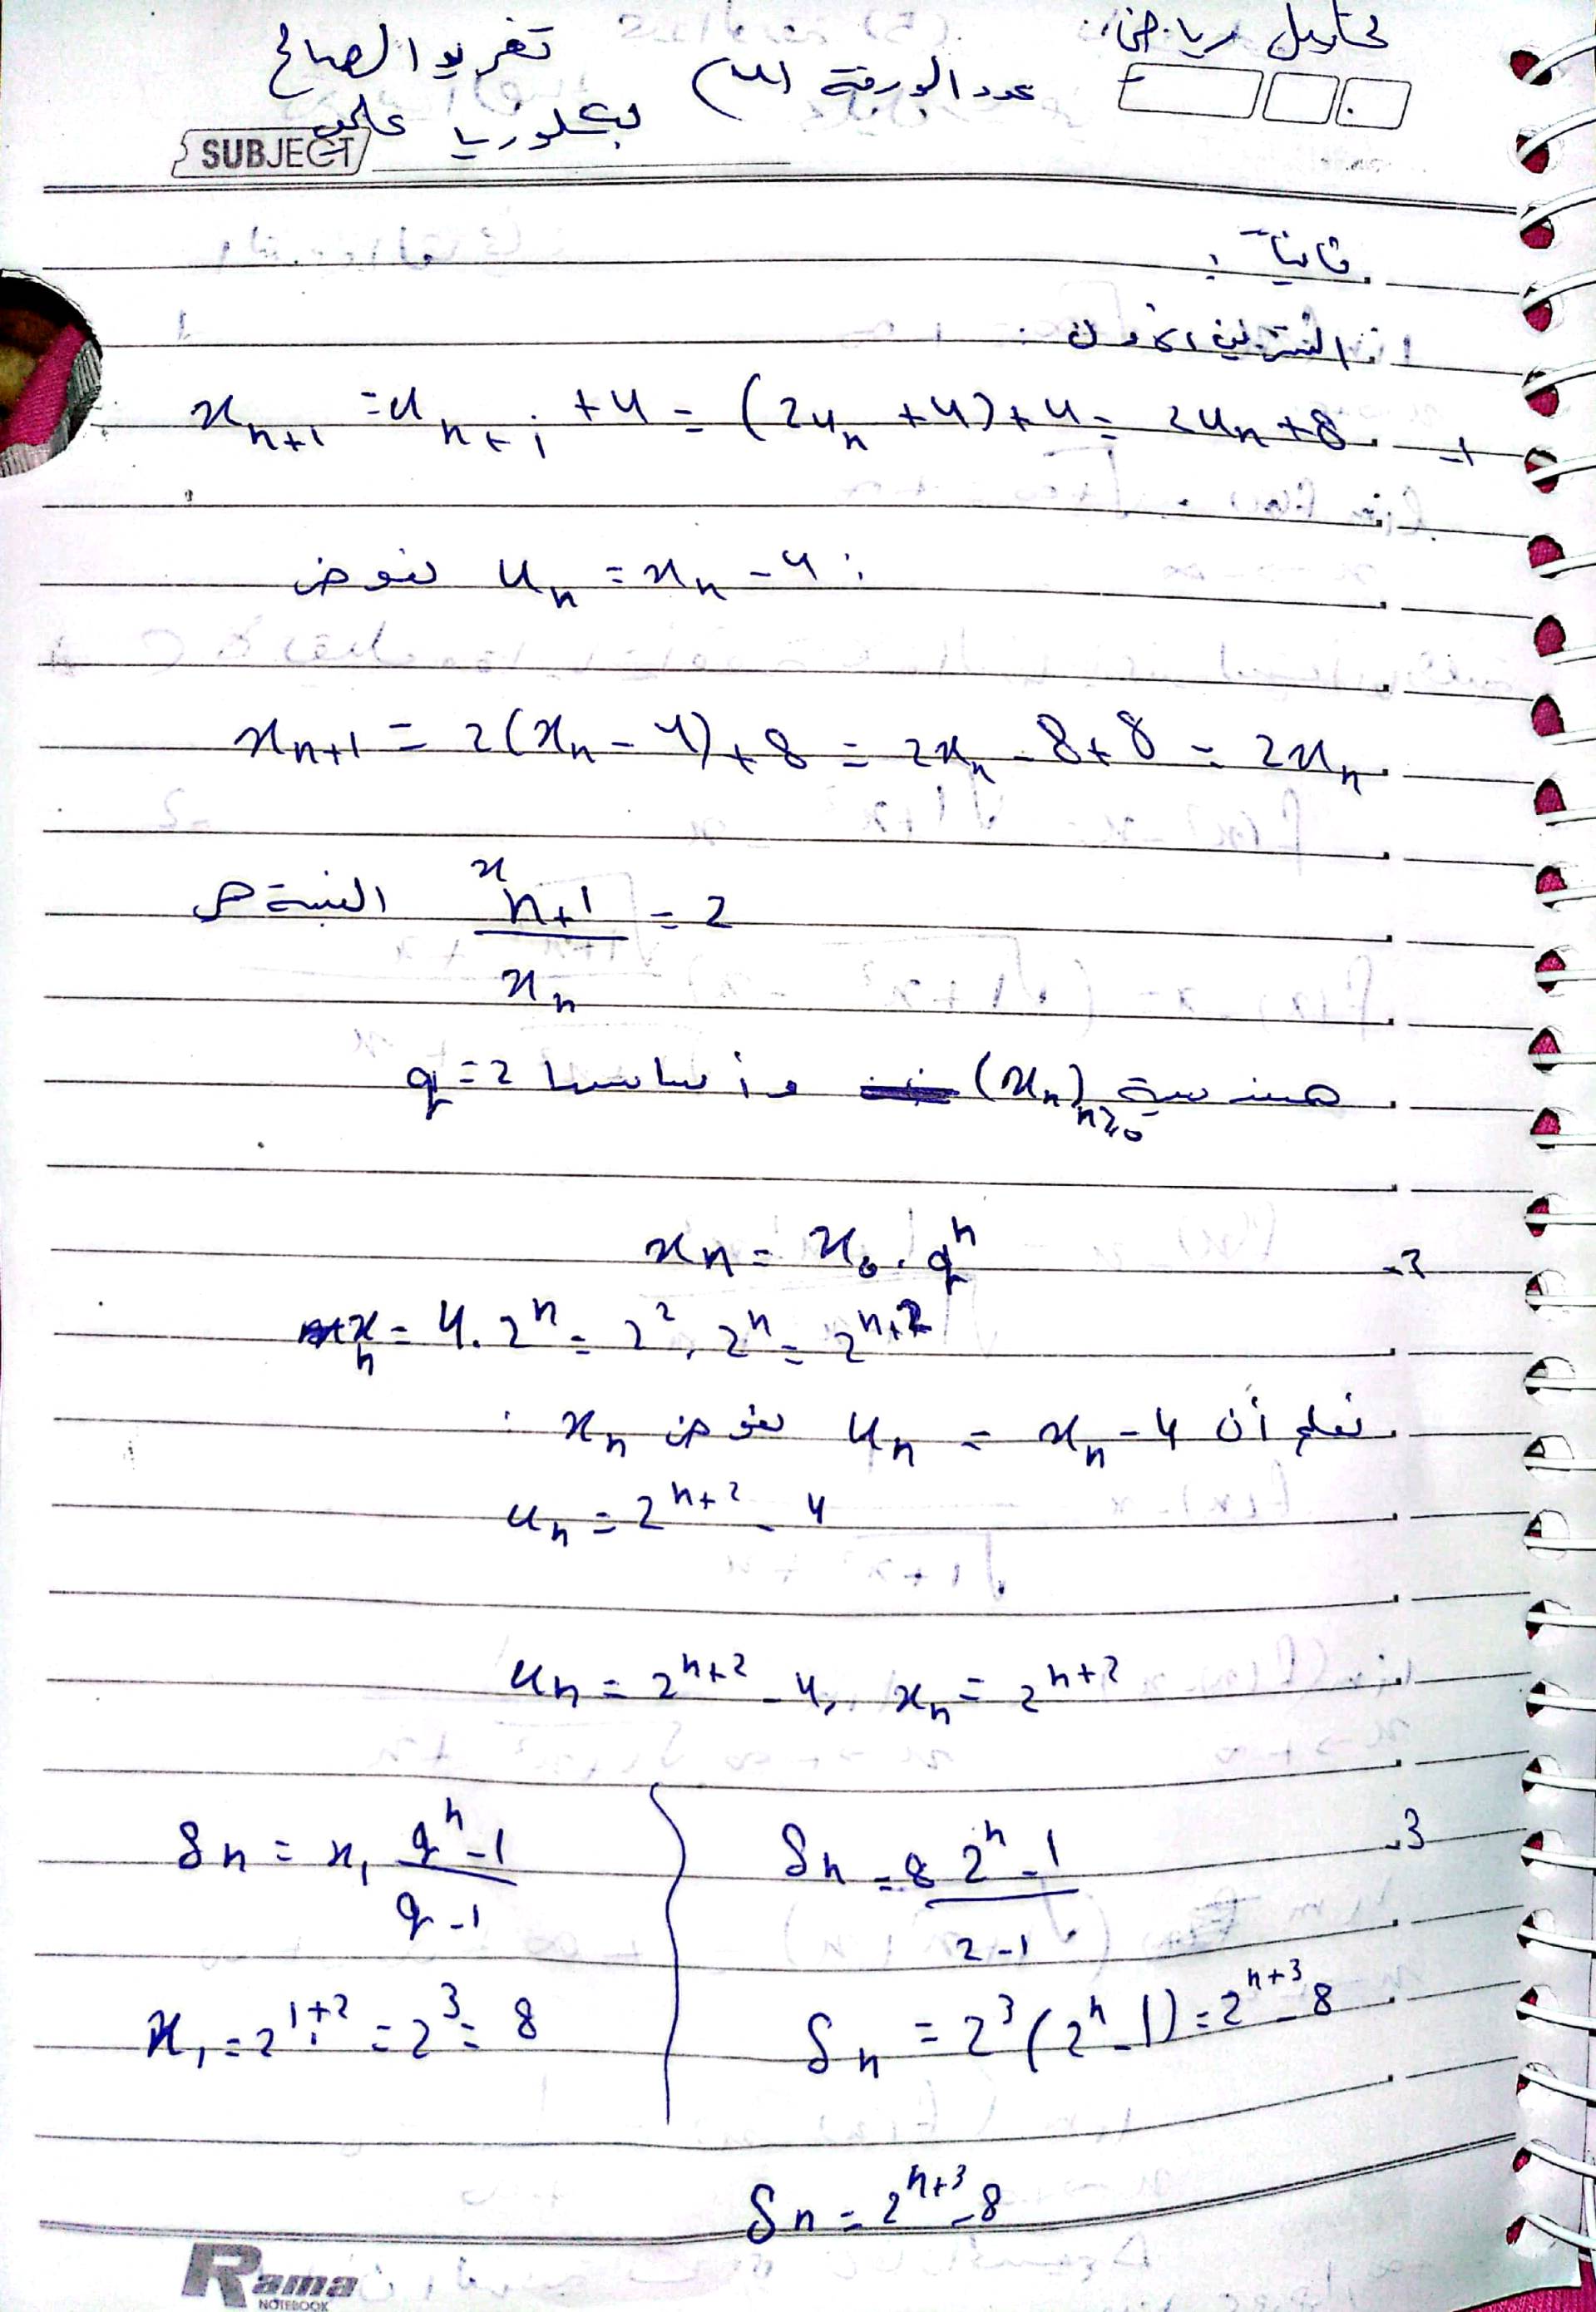 تحليل رياضي
عدد الورقة (4)
تغريد الصالح
بكلوريا علمي
SUBJECT
ثانياً:
التمرين الأول:
1- x_{n+1} = u_{n+1} + 4 = (2u_n + 4) + 4 = 2u_n + 8
نعوض u_n = x_n - 4 :
x_{n+1} = 2(x_n - 4) + 8 = 2x_n - 8 + 8 = 2x_n
x_{n+1} / x_n = 2
هندسية (x_n)_{n≥0} وأساسها q = 2
2- x_n = x_0 . q^n
x_n = 4 . 2^n = 2^2 . 2^n = 2^{n+2}
نعلم أن u_n = x_n - 4 نعوض x_n :
u_n = 2^{n+2} - 4
u_n = 2^{n+2} - 4, x_n = 2^{n+2}
3- S_n = x_1 (q^n - 1) / (q - 1)
x_1 = 2^{1+2} = 2^3 = 8
S_n = 8 (2^n - 1) / (2 - 1)
S_n = 2^3 (2^n - 1) = 2^{n+3} - 8
S_n = 2^{n+3} - 8
Rama
NOTEBOOK